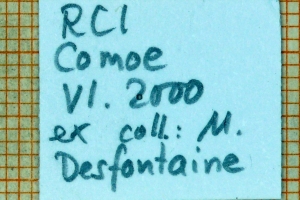 RCI
Comoe
VI. 2000
ex coll.: M.
Desfontaine